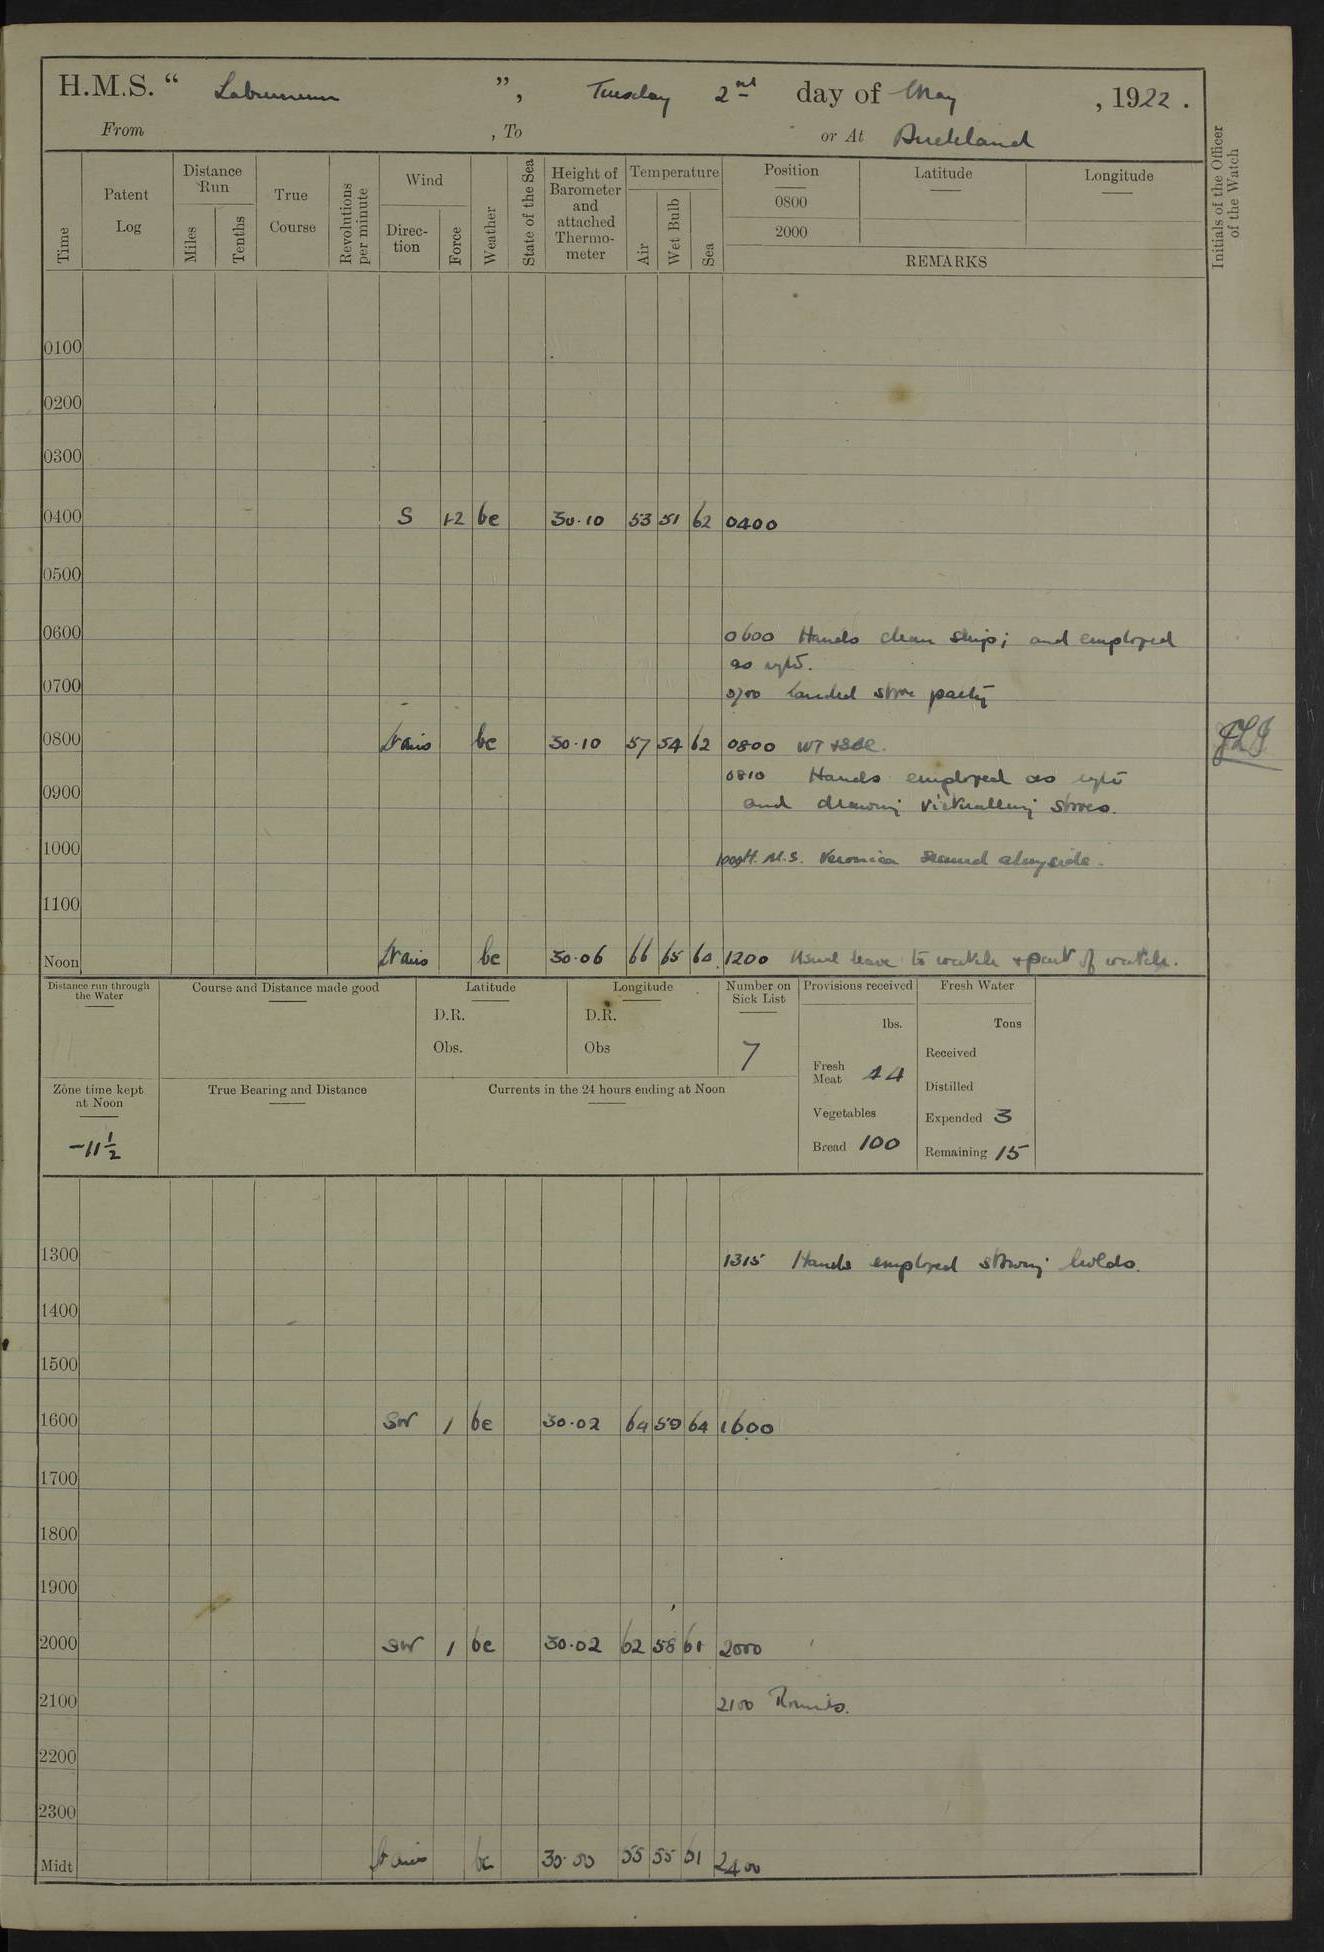 H.M.S. “ Laburnum ”, Tuesday 2nd day of May , 1922 .
From , To or At Auckland
Time Patent Log Distance Run Miles Tenths True Course Revolutions per minute Wind Direction Force Weather State of the Sea Height of Barometer and attached Thermometer Temperature Air Wet Bulb Sea Position 0800 2000 Latitude Longitude REMARKS Initials of the Officer of the Watch
0100
0200
0300
0400 S 1-2 bc 30.10 53 51 62 0400
0500
0600 0600 Hands clean ship; and employed
as
0700 0700 Landed store party
0800 bc 30.10 57 54 62 0800 WT
0810 Hands employed as
0900 and drawing victualling stores.
1000 1000 H.M.S. Veronica secured alongside.
1100
Noon bc 30.06 66 65 60 1200 Usual leave to watch + part of watch.
Distance run through the Water Course and Distance made good Latitude Longitude Number on Sick List Provisions received Fresh Water
D.R. D.R. lbs. Tons
Obs. Obs 7 Received
Fresh Meat 44 Distilled
Zone time kept at Noon True Bearing and Distance Currents in the 24 hours ending at Noon
Vegetables Expended 3
-11 1/2 Bread 100 Remaining 15
1300 1315 Hands employed stowing holds.
1400
1500
1600 SW 1 bc 30.02 64 59 64 1600
1700
1800
1900
2000 SW 1 bc 30.02 62 58 61 2000
2100 2100 Rounds.
2200
2300
Midt bc 30.00 55 55 61 2400